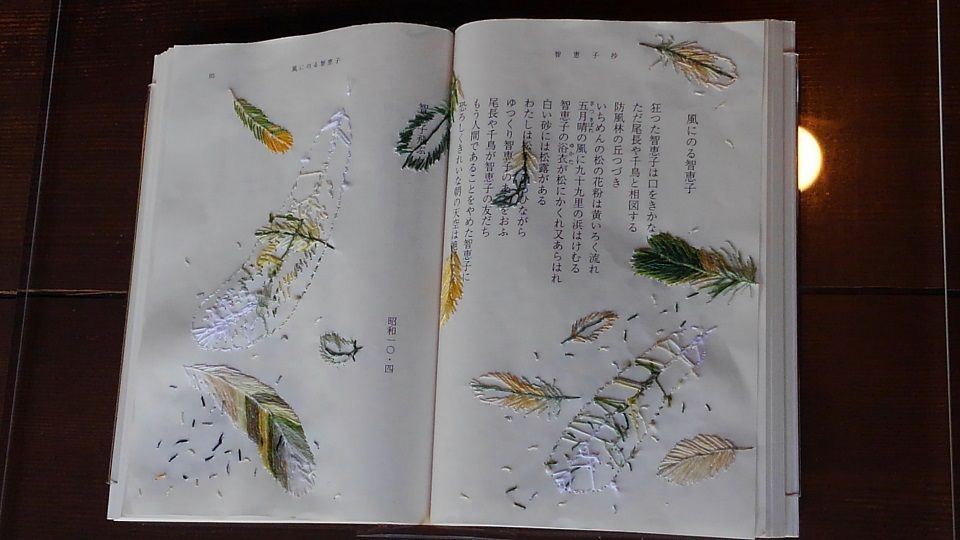 智恵子抄
風にのる智恵子
狂つた智恵子は口をきかな
ただ尾長や千鳥と相図する
防風林の丘つづき
いちめんの松の花粉は黄いろく流れ
五月晴の風に九十九里の浜はけむる
智恵子の浴衣が松にかくれ又あらはれ
白い砂には松露がある
わたしは松 ひながら
ゆつくり智恵子の をおふ
尾長や千鳥が智恵子の友だち
もう人間であることをやめた智恵子に
恐ろしくきれいな朝の天空は絶
智 子飛ぶ
昭和一〇・四
風にのる智恵子
85